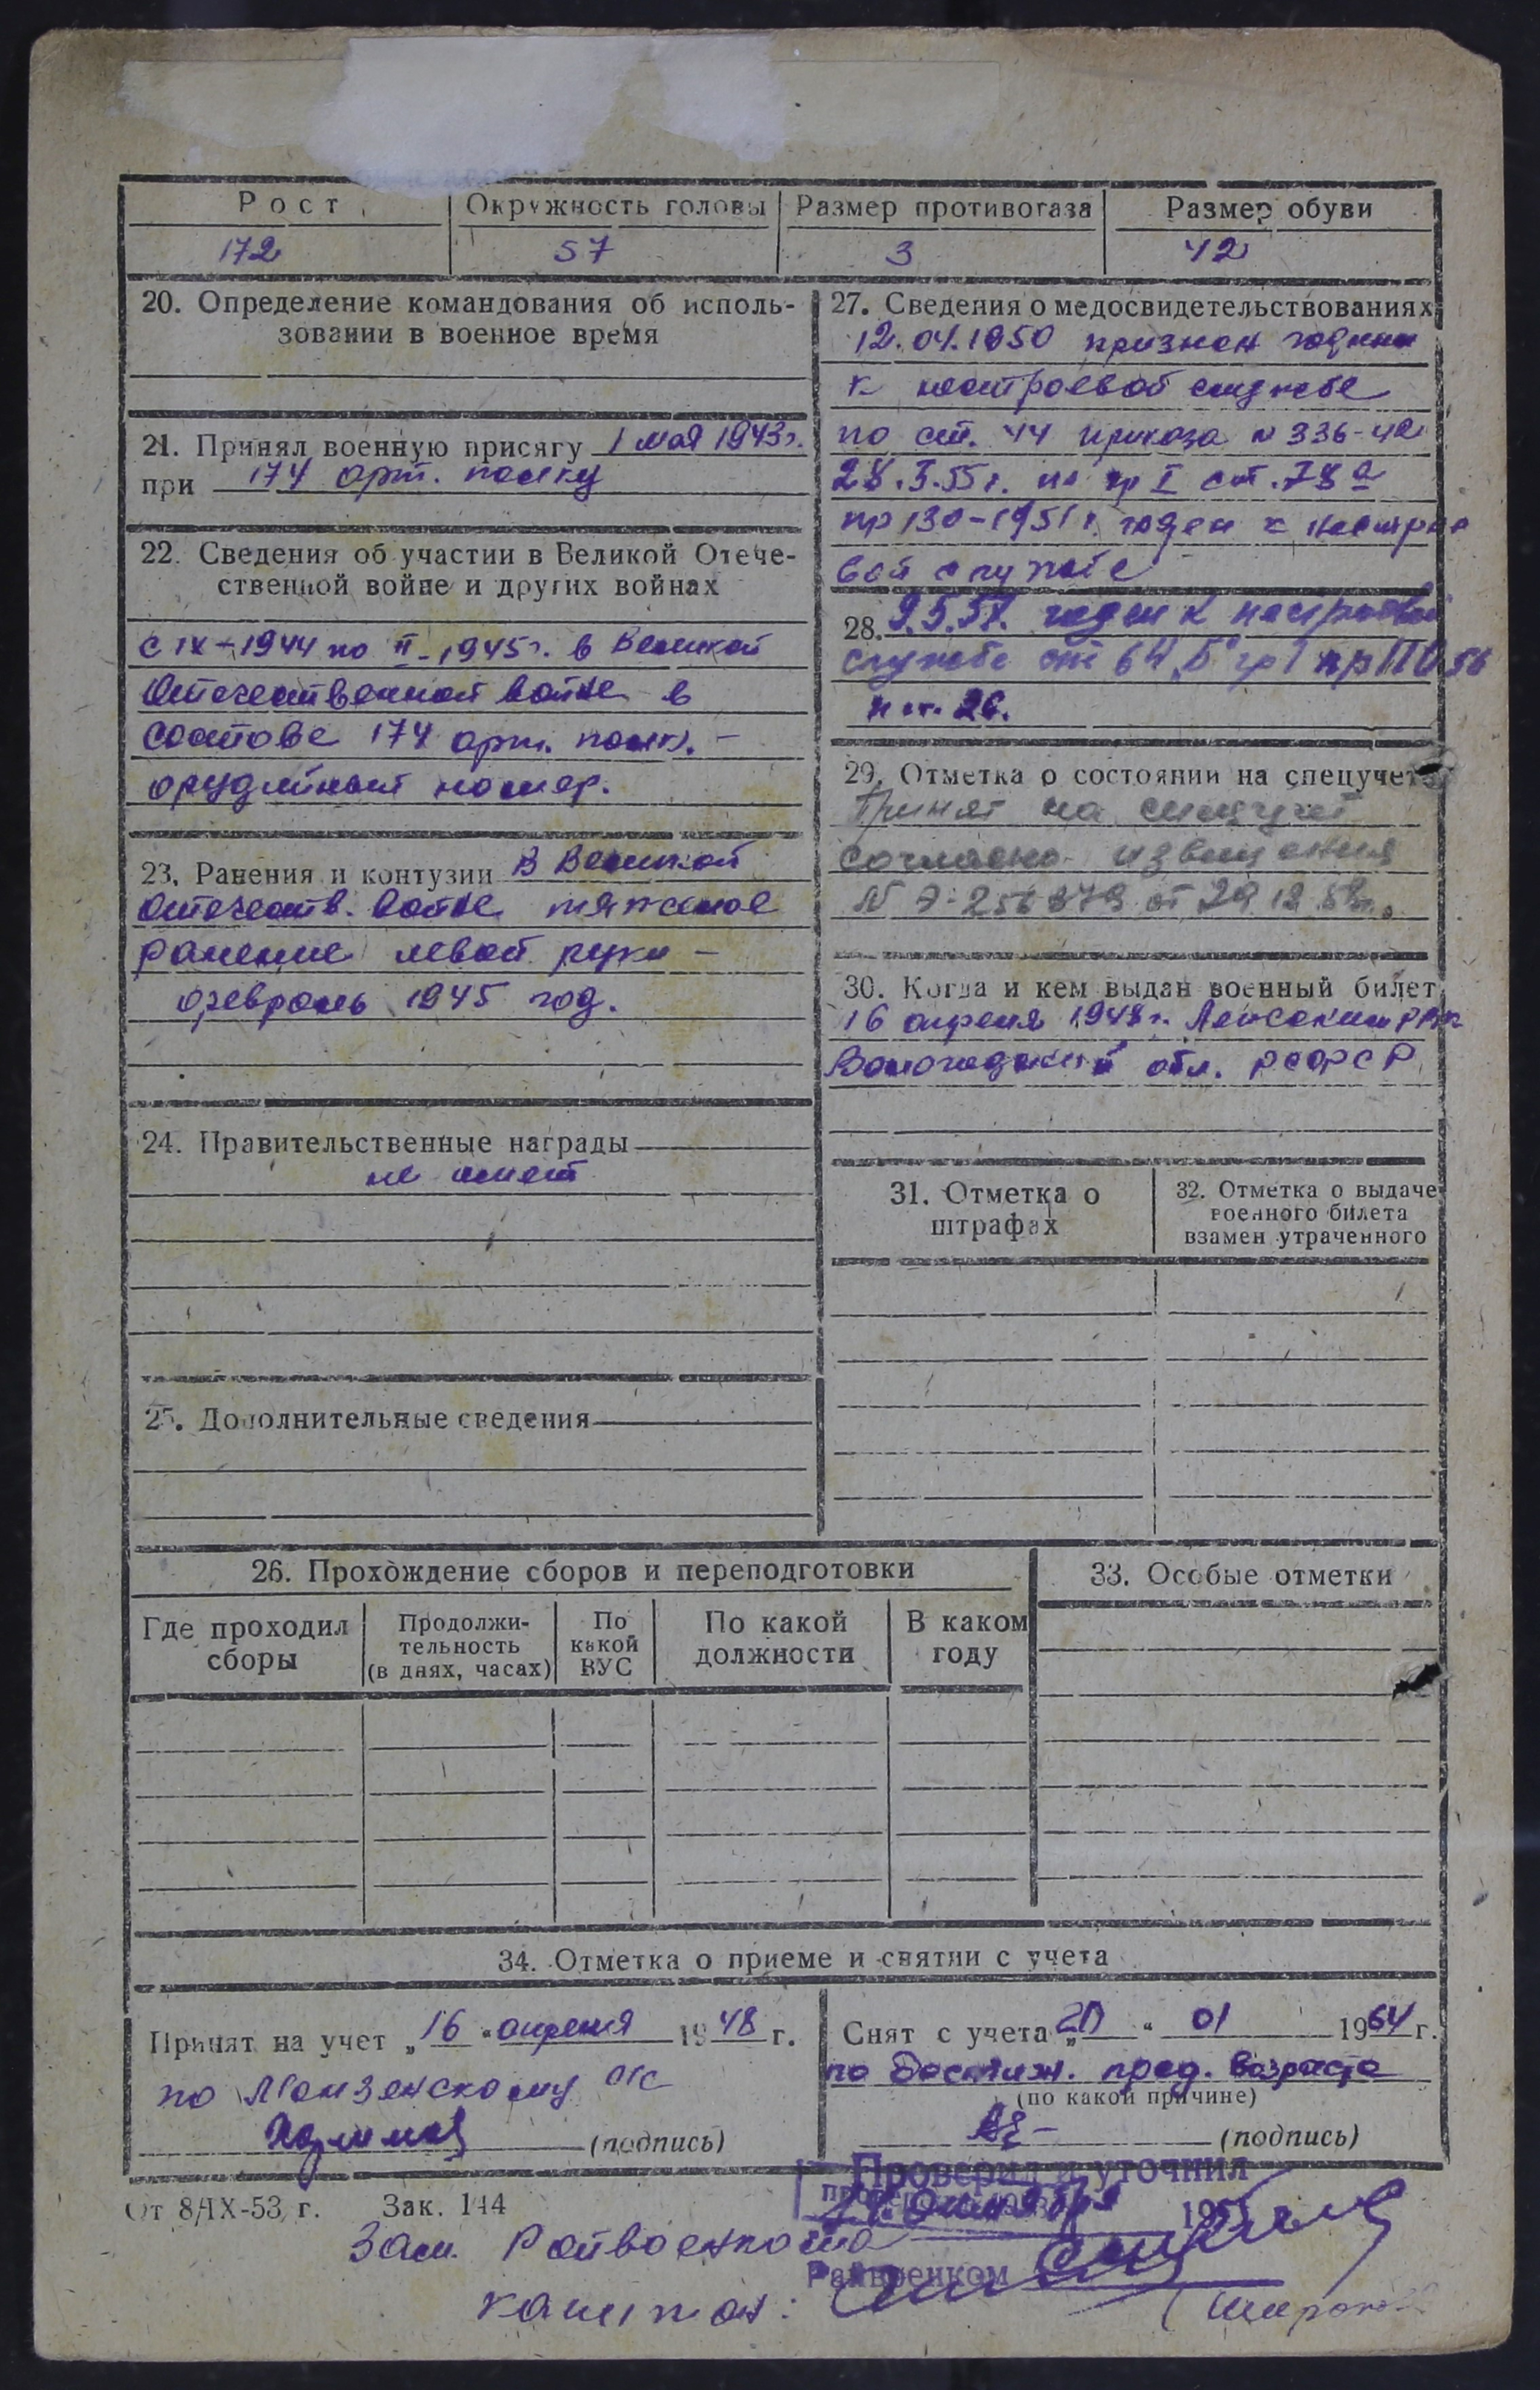 Рост
Окружность головы
Размер противогаза
Размер обуви
172
57
3
42
20. Определение командования об исполь-
зовании в военное время
21. Принял военную присягу 1 мая 1943 г.
при 174 арт. полку
22. Сведения об участии в Великой Отече-
ственной войне и других войнах
с IX-1944 по II-1945 г. в Великой
Отечественной войне в
составе 174 арт. полк. –
орудийный номер.
23. Ранения и контузии В Великой
Отечеств. войне тяжелое
ранение левой руки –
февраль 1945 год.
24. Правительственные награды
не имеет
25. Дополнительные сведения
27. Сведения о медосвидетельствованиях
12.04.1950 признан годным
к нестроевой службе
по ст. 44 приказа № 336-42
28.5.55 г. по гр I ст. 78 а
пр 130-1951 г. годен к нестрое
вой службе
28. 9.5.57. годен к нестроевой
службе ст 64 Б гр I пр
29. Отметка о состоянии на спецучете
Принят на спецучет
согласно извещения
30. Когда и кем выдан военный билет
16 апреля 1948 г.
Вологодской обл. РСФСР
31. Отметка о
штрафах
32. Отметка о выдаче
военного билета
взамен утраченного
26. Прохождение сборов и переподготовки
Где проходил
сборы
Продолжи-
тельность
(в днях, часах)
По
какой
ВУС
По какой
должности
В каком
году
33. Особые отметки
34. Отметка о приеме и снятии с учета
Принят на учет „16" апреля 1948 г.
по Монзенскому с/с
(подпись)
Снят с учета „20" 01 1964 г.
по достиж. пред. возраста
(по какой причине)
(подпись)
От 8/IX-53 г. Зак. 144
Проверил и уточнил
Зам. Райвоенкома
Райвоенком
капитан: